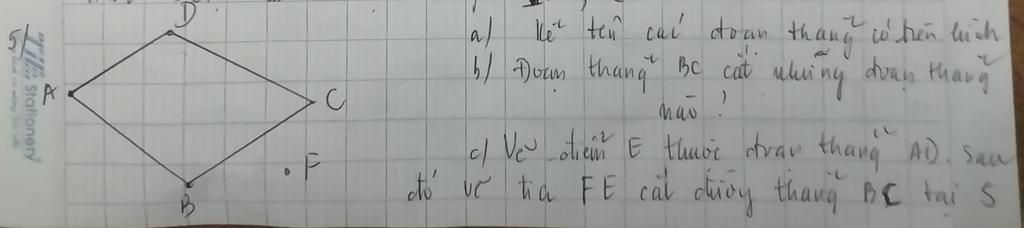 5/
Stationery
D
A
C
F
B
a) Kể tên các đoạn thẳng có trên hình
b) Đoạn thẳng BC cắt những đoạn thẳng
nào?
c) Vẽ điểm E thuộc đoạn thẳng AD. Sau
đó vẽ tia FE cắt đường thẳng BC tại S